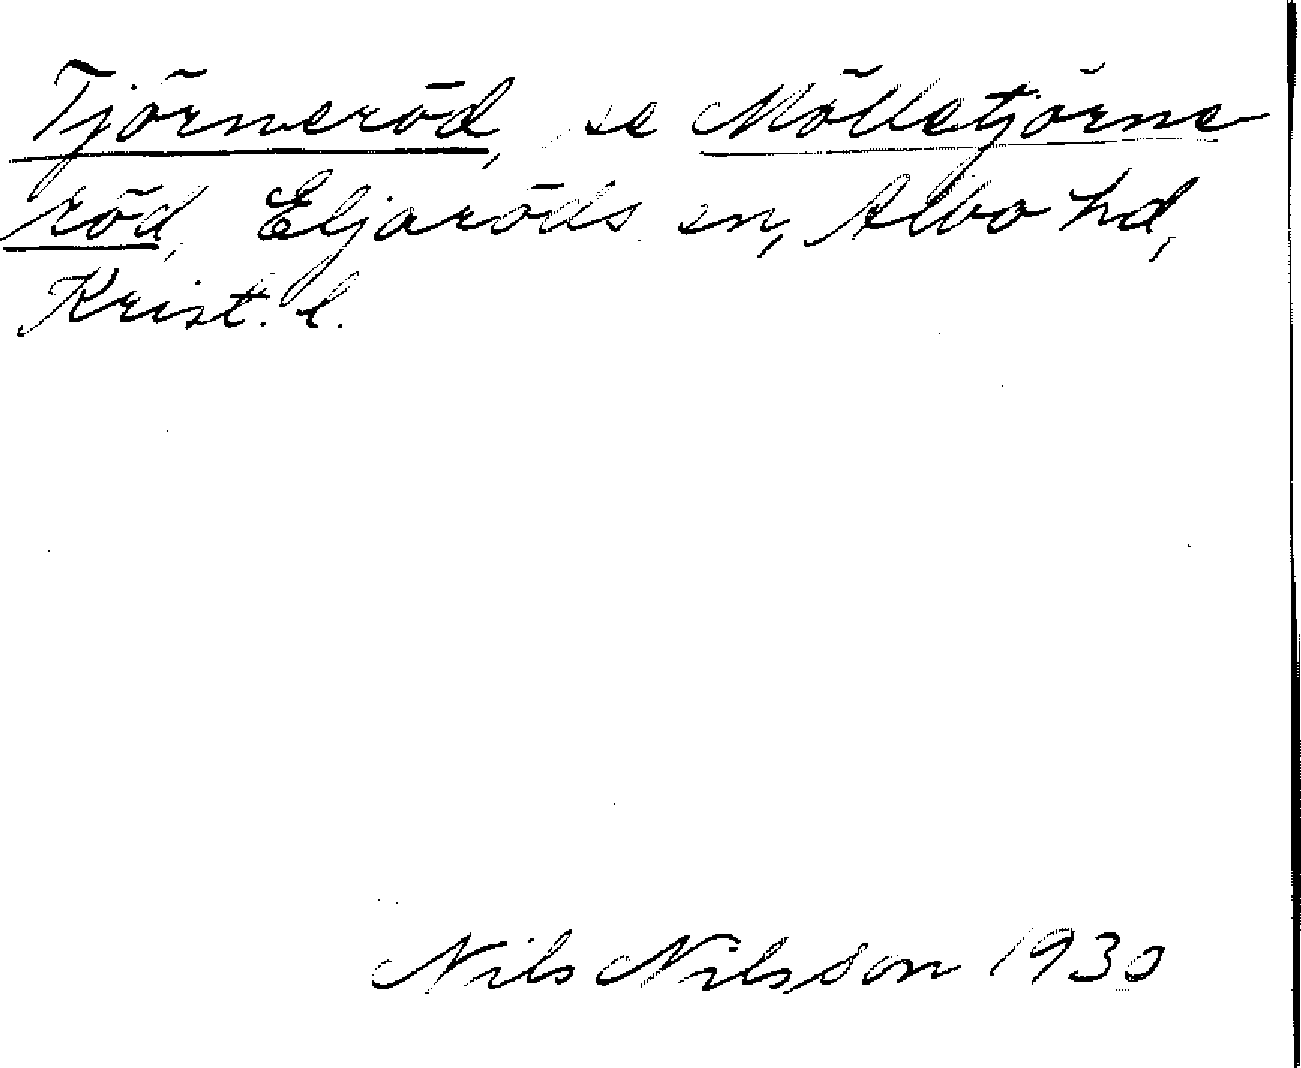 Tjörneröd, se Mölletjörne
röd, Eljaröds sn, Albo hd,
Krist. l.
Nils Nilsson 1930